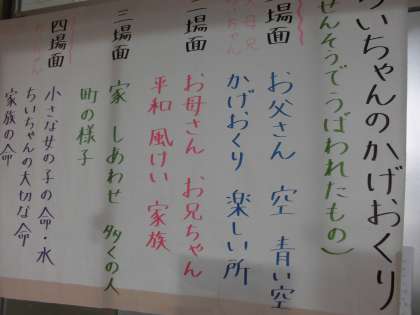 ちいちゃんのかげおくり
せんそうでうばわれたもの）
場面
お父さん 空 青い空
かげおくり 楽しい所
二場面
お母さん お兄ちゃん
平和 風けい 家族
三場面
家 しあわせ 多くの人
町の様子
四場面
小さな女の子の命・水
ちいちゃんの大切な命
家族の命